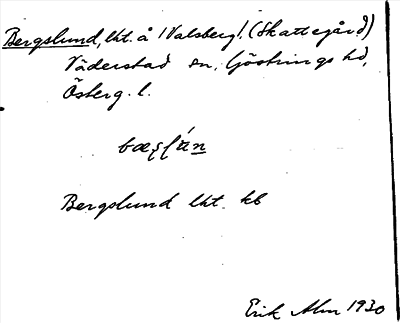 Bergslund, lht. å 1 Valsberg!. (Skattegård)
Väderstad sn, Göstrings hd,
Österg. l.
Bergslund lht. kb
Erik Alm 1930